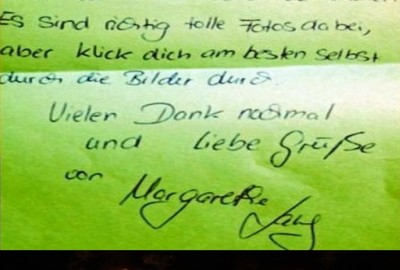 Es sind richtig tolle Fotos dabei,
aber klick dich am besten selbst
durch die Bilder durch.
Vielen Dank nochmal
und liebe Grüße
von Margarethe